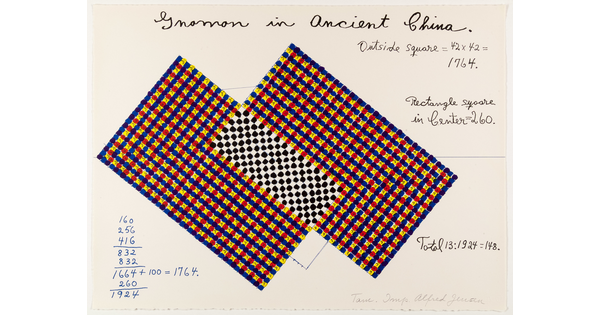 Gnomon in Ancient China.
Outside square = 42 x 42 =
1764.
Rectangle square
in Center=260.
Total 13:1924=148.
160
256
416
832
832
1664 + 100 = 1764.
260
1924
Alfred Jensen